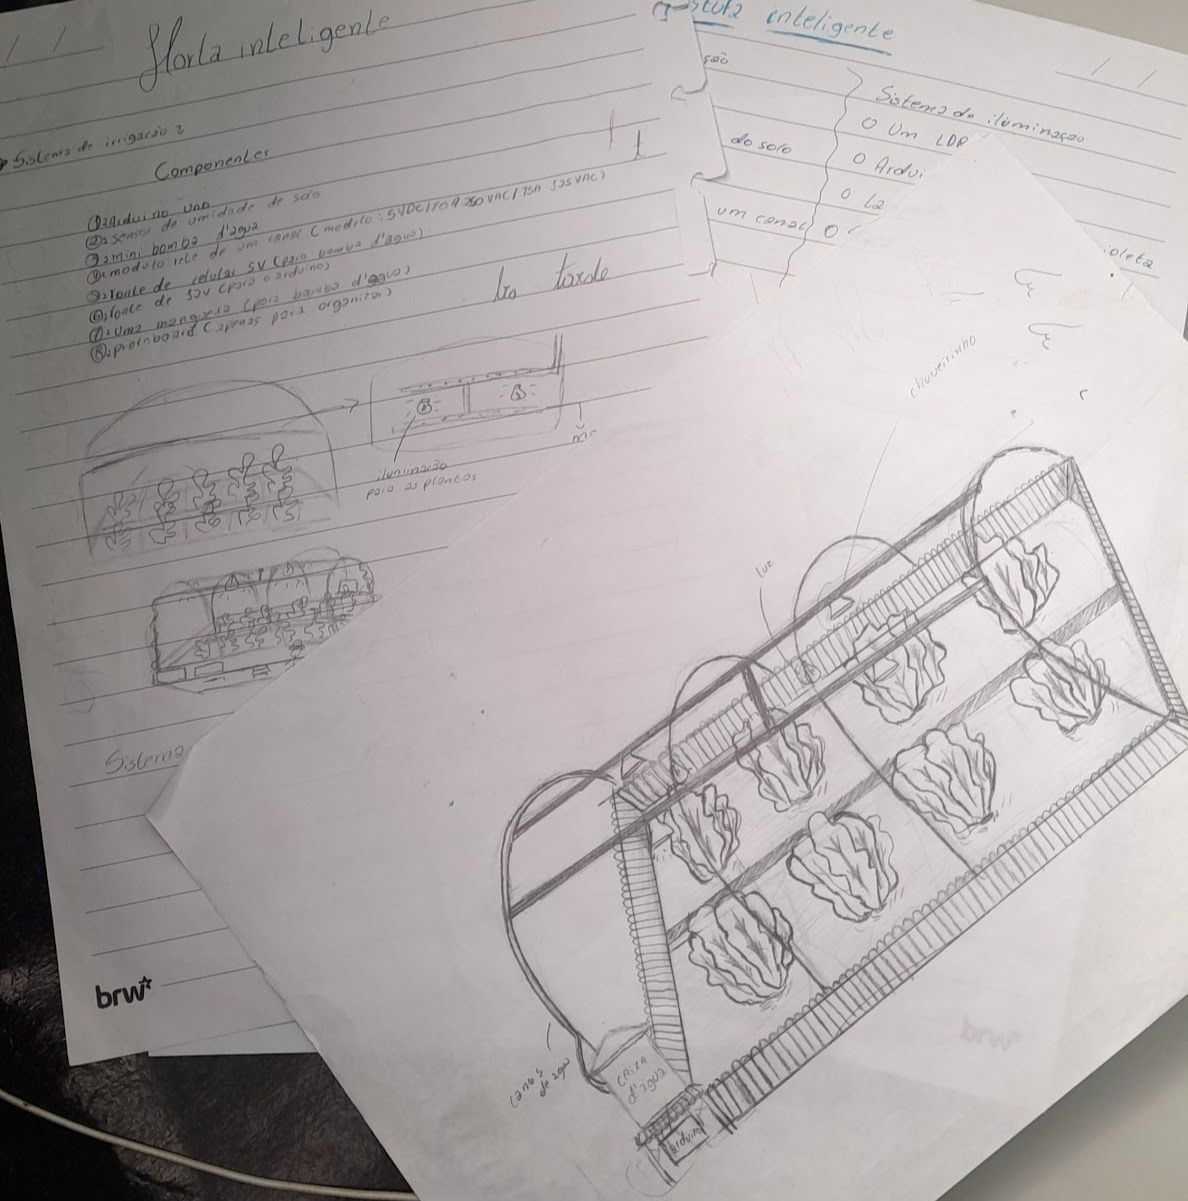 Horta inteligente
Sistema de irrigação:
Componentes
①: Arduino uno
②: sensor de umidade de solo
③: mini bomba d'água
④: modulo rele de um canal (modelo: 5VDC/10A 250VAC/15A 125VAC)
⑤: fonte de celular 5V (para bomba d'água)
⑥: fonte de 12V (para o arduino)
⑦: uma mangueira (para bomba d'água)
⑧: protoboard (apenas para organizar)
tarde
iluminação
para as plantas
Sistema
brw
inteligente
ção
do solo
um canal
Sistema de iluminação
O Um LDR
O Ardui
O
violeta
chuveirinho
luz
canos
de água
CAIXA
d'água
arduino
brw